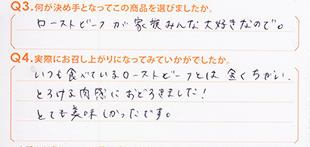 Q3.何が決め手となってこの商品を選びましたか。
ローストビーフが家族みんな大好きなので。
Q4.実際にお召し上がりになってみていかがでしたか。
いつも食べているローストビーフとは全くちがい、
とろける肉感におどろきました!
とても美味しかったです。